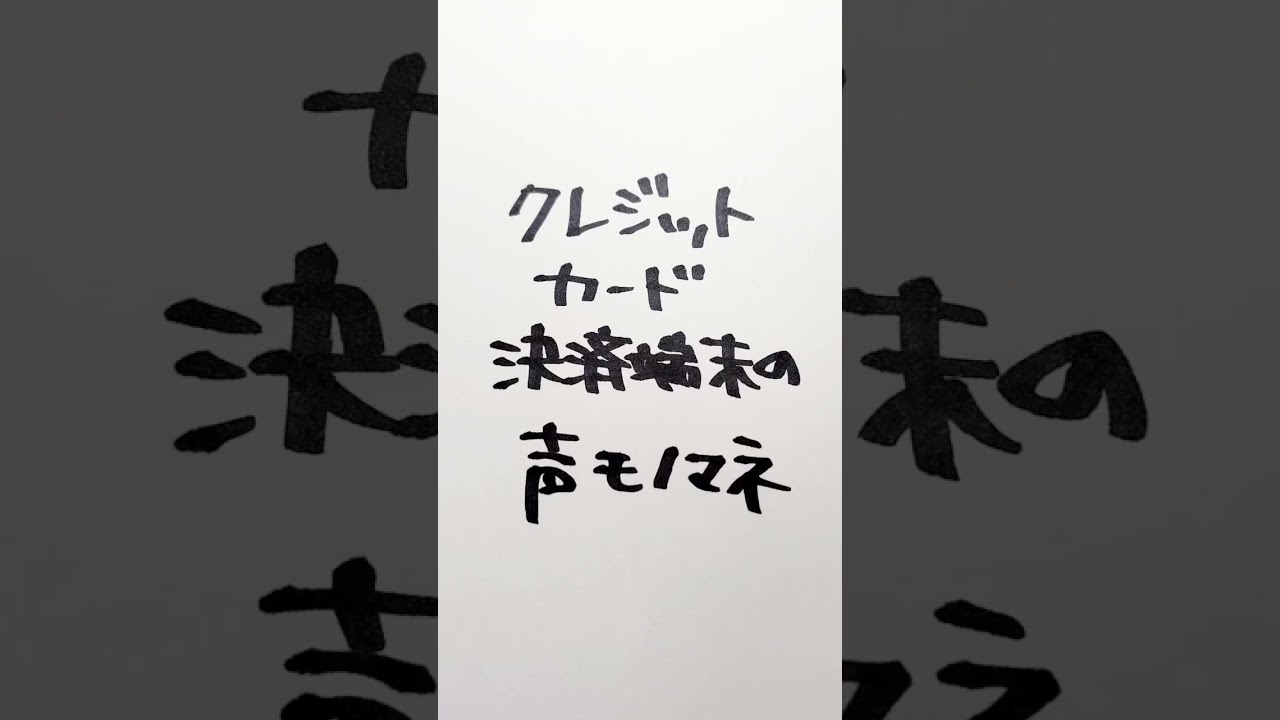 クレジット
カード
決済端末の
声モノマネ